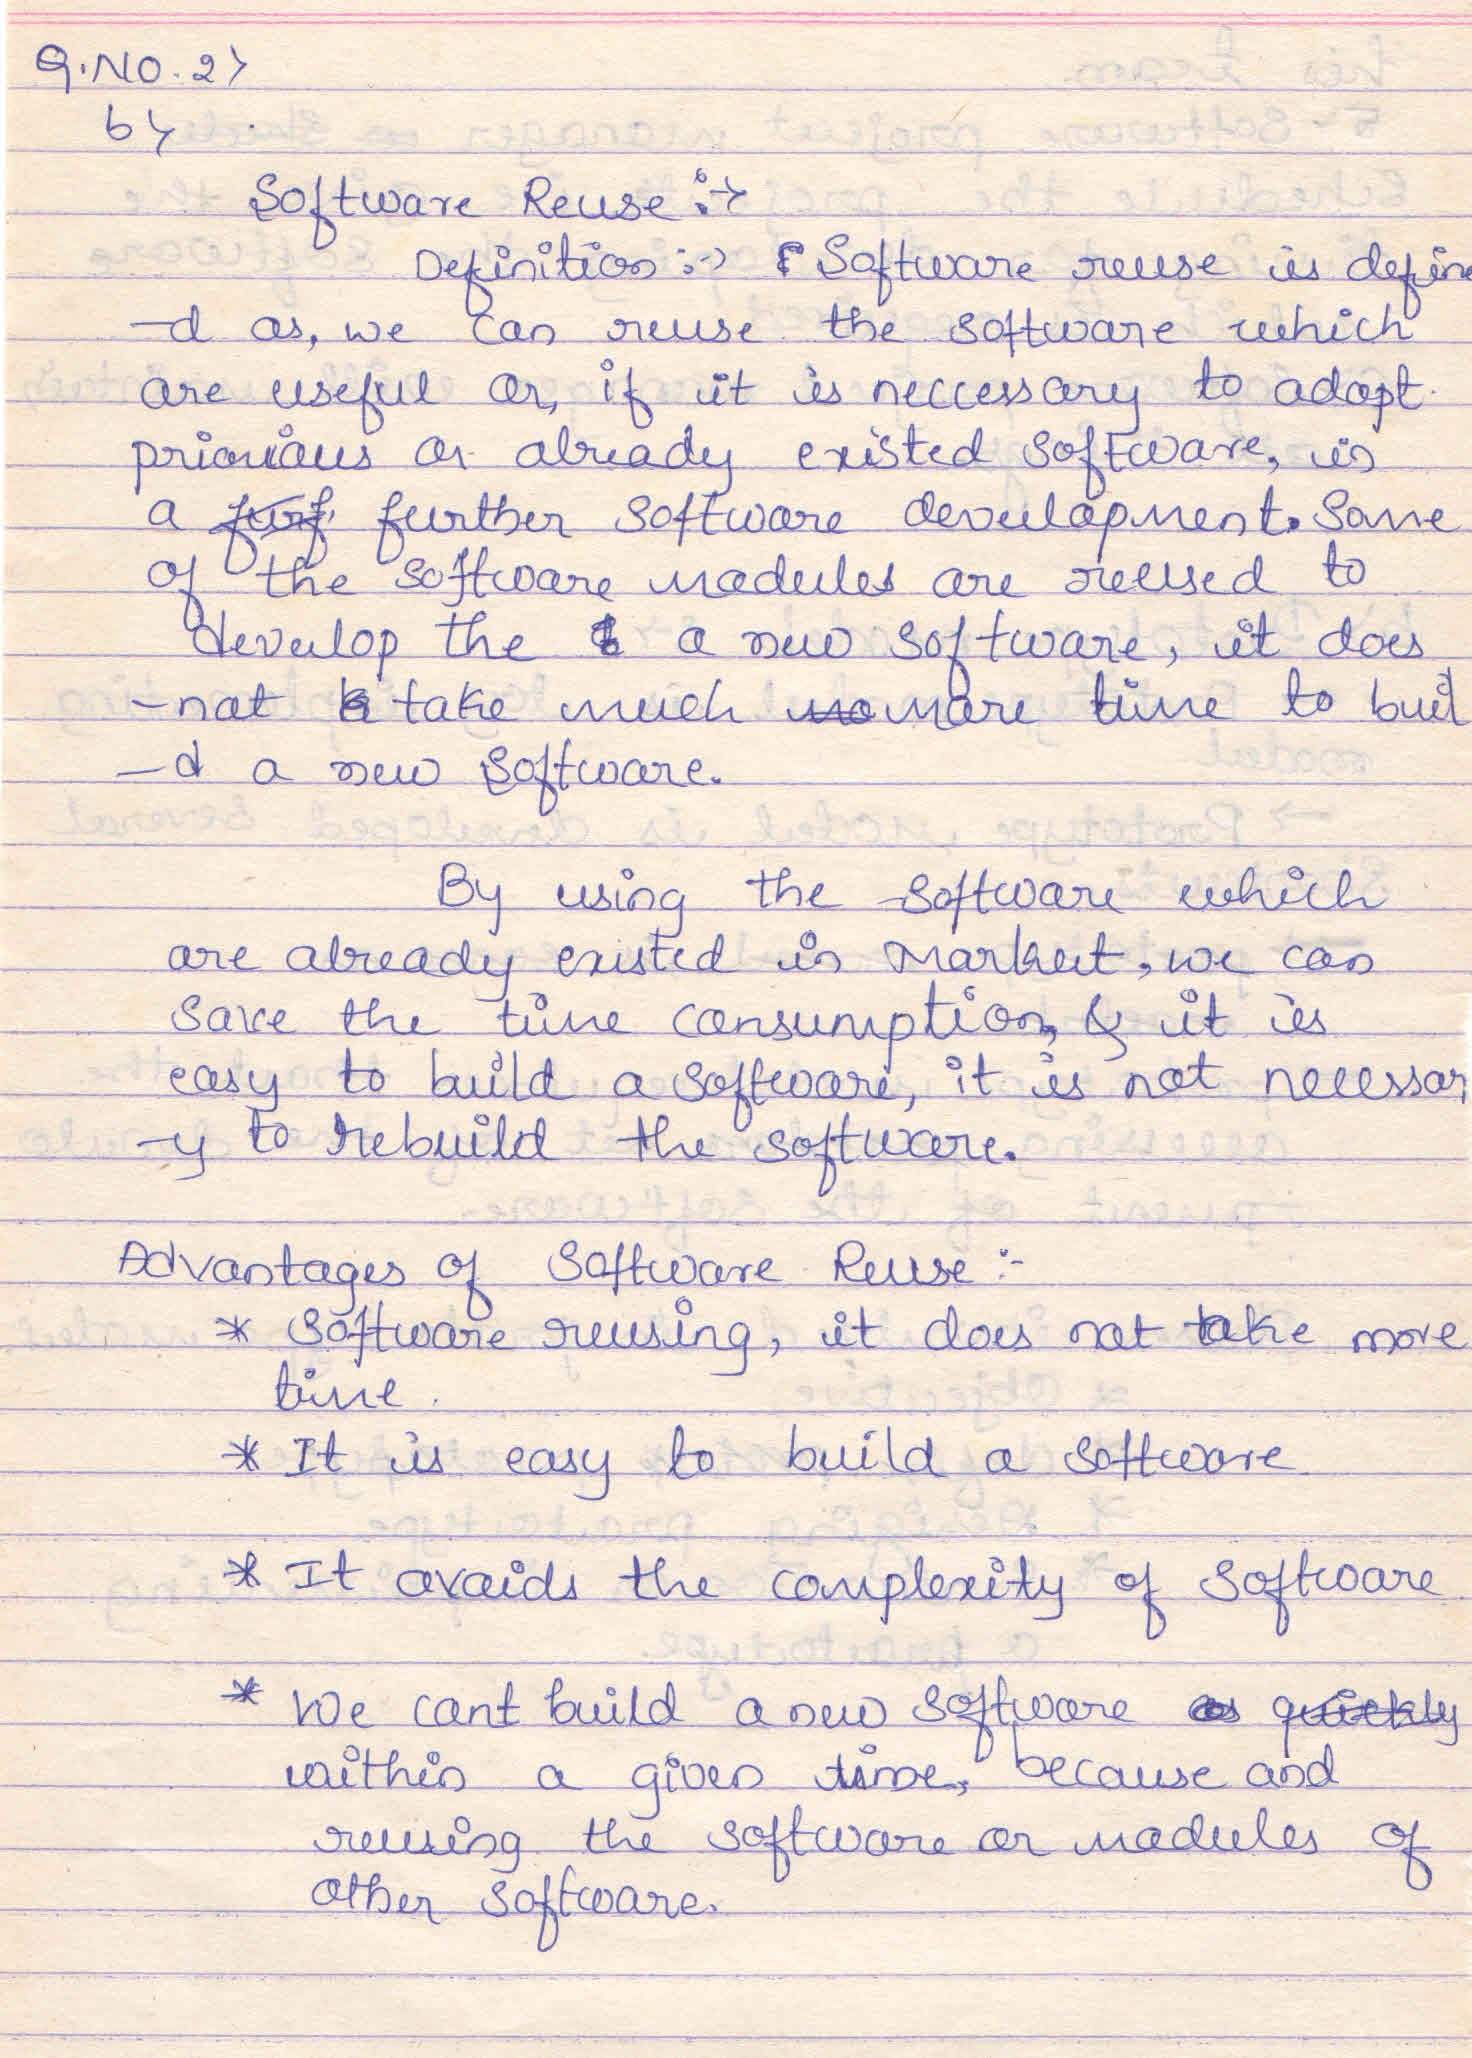 Q.NO.2>
b>
Software Reuse:->
Definition:-> Software reuse is define
-d as, we can reuse the software which
are useful or, if it is neccessary to adopt
as already existed software, is
a further software development. Some
of the software modules are reused to
develop the a new software, it does
-not take much more time to buil
-d a new software.
By using the software which
are already existed in Market, we can
save the time consumption, & it is
easy to build a software, it is not necessar
-y to rebuild the software.
Advantages of Software Reuse:-
* Software reusing, it does not take more
time.
* It is easy to build a software
* It avoids the complexity of software
* We cant build a new software as quickly
within a given time, because and
reusing the software or modules of
other software.